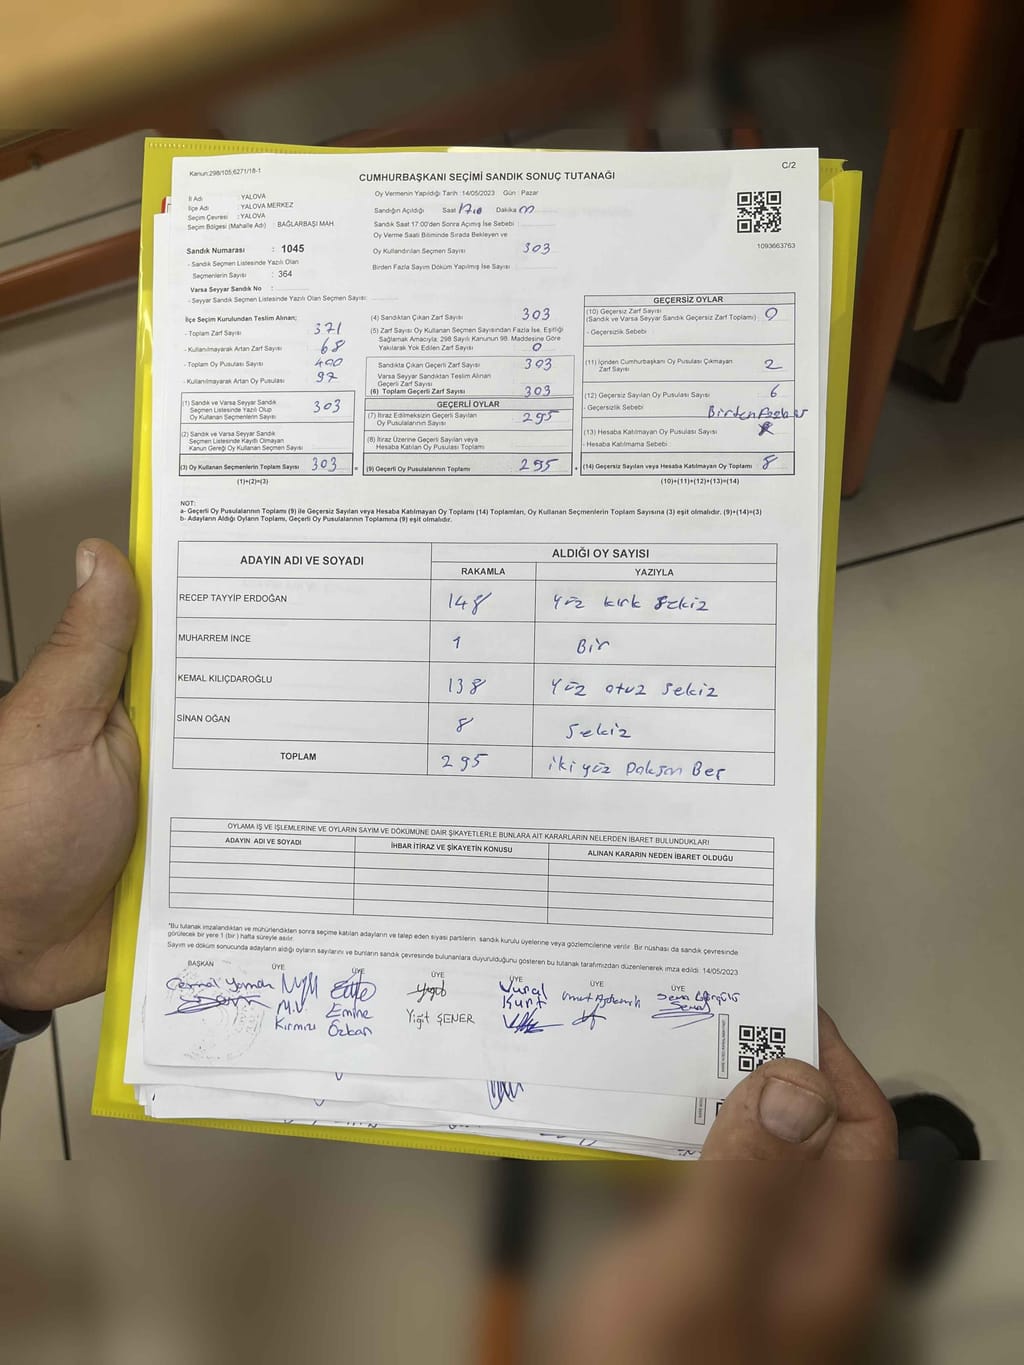 Kanun:298/105;6271/18-1
C/2
CUMHURBAŞKANI SEÇİMİ SANDIK SONUÇ TUTANAĞI
İl Adı : YALOVA
İlçe Adı : YALOVA MERKEZ
Seçim Çevresi : YALOVA
Seçim Bölgesi (Mahalle Adı) : BAĞLARBAŞI MAH.
Sandık Numarası : 1045
- Sandık Seçmen Listesinde Yazılı Olan
Seçmenlerin Sayısı : 364
Varsa Seyyar Sandık No :
- Seyyar Sandık Seçmen Listesinde Yazılı Olan Seçmen Sayısı:
Oy Vermenin Yapıldığı Tarih : 14/05/2023 Gün : Pazar
Sandığın Açıldığı Saat 17.0 Dakika
Sandık Saat 17:00'den Sonra Açılmış İse Sebebi :
Oy Verme Saati Bitiminde Sırada Bekleyen ve
Oy Kullandırılan Seçmen Sayısı 303
Birden Fazla Sayım Döküm Yapılmış İse Sayısı :
1093663763
İlçe Seçim Kurulundan Teslim Alınan;
- Toplam Zarf Sayısı 371
- Kullanılmayarak Artan Zarf Sayısı 68
- Toplam Oy Pusulası Sayısı 400
- Kullanılmayarak Artan Oy Pusulası 97
(1) Sandık ve Varsa Seyyar Sandık
Seçmen Listesinde Yazılı Olup
Oy Kullanan Seçmenlerin Sayısı 303
(2) Sandık ve Varsa Seyyar Sandık
Seçmen Listesinde Kayıtlı Olmayan
Kanun Gereği Oy Kullanan Seçmen Sayısı
(3) Oy Kullanan Seçmenlerin Toplam Sayısı 303 =
(1)+(2)=(3)
(4) Sandıktan Çıkan Zarf Sayısı 303
(5) Zarf Sayısı Oy Kullanan Seçmen Sayısından Fazla İse, Eşitliği
Sağlamak Amacıyla; 298 Sayılı Kanunun 98. Maddesine Göre
Yakılarak Yok Edilen Zarf Sayısı 0
Sandıkta Çıkan Geçerli Zarf Sayısı 303
Varsa Seyyar Sandıktan Teslim Alınan
Geçerli Zarf Sayısı
(6) Toplam Geçerli Zarf Sayısı 303
GEÇERLİ OYLAR
(7) İtiraz Edilmeksizin Geçerli Sayılan
Oy Pusulasının Sayısı 295
(8) İtiraz Üzerine Geçerli Sayılan veya
Hesaba Katılan Oy Pusulası Toplamı
(9) Geçerli Oy Pusulalarının Toplamı 295 +
GEÇERSİZ OYLAR
(10) Geçersiz Zarf Sayısı
(Sandık ve Varsa Seyyar Sandık Geçersiz Zarf Toplamı) : 0
- Geçersizlik Sebebi :
(11) İçinden Cumhurbaşkanı Oy Pusulası Çıkmayan
Zarf Sayısı 2
(12) Geçersiz Sayılan Oy Pusulası Sayısı : 6
- Geçersizlik Sebebi Birden
(13) Hesaba Katılmayan Oy Pusulası Sayısı :
- Hesaba Katılmama Sebebi :
(14) Geçersiz Sayılan veya Hesaba Katılmayan Oy Toplamı 8
(10)+(11)+(12)+(13)=(14)
NOT:
a- Geçerli Oy Pusulalarının Toplamı (9) ile Geçersiz Sayılan veya Hesaba Katılmayan Oy Toplamı (14) Toplamları, Oy Kullanan Seçmenlerin Toplam Sayısına (3) eşit olmalıdır. (9)+(14)=(3)
b- Adayların Aldığı Oyların Toplamı, Geçerli Oy Pusulalarının Toplamına (9) eşit olmalıdır.
ADAYIN ADI VE SOYADI
ALDIĞI OY SAYISI
RAKAMLA YAZIYLA
RECEP TAYYİP ERDOĞAN 148 Yüz kırk sekiz
MUHARREM İNCE 1 Bir
KEMAL KILIÇDAROĞLU 138 Yüz otuz sekiz
SİNAN OĞAN 8 sekiz
TOPLAM 295 iki yüz Doksan Beş
OYLAMA İŞ VE İŞLEMLERİNE VE OYLARIN SAYIM VE DÖKÜMÜNE DAİR ŞİKAYETLERLE BUNLARA AİT KARARLARIN NELERDEN İBARET BULUNDUKLARI
ADAYIN ADI VE SOYADI İHBAR İTİRAZ VE ŞİKAYETİN KONUSU ALINAN KARARIN NEDEN İBARET OLDUĞU
*Bu tutanak imzalandıktan ve mühürlendikten sonra seçime katılan adayların ve talep eden siyasi partilerin sandık kurulu üyelerine veya gözlemcilerine verilir. Bir nüshası da sandık çevresinde
görülecek bir yere 1 (bir) hafta süreyle asılır.
Sayım ve döküm sonucunda adayların aldığı oyların sayılarını ve bunların sandık çevresinde bulunanlara duyurulduğunu gösteren bu tutanak tarafımızdan düzenlenerek imza edildi. 14/05/2023
BAŞKAN ÜYE ÜYE ÜYE ÜYE ÜYE ÜYE
Cemal Yaman
M.V. Kırmızı
Emine Özkan
Yiğit ŞENER
Vural Kurt